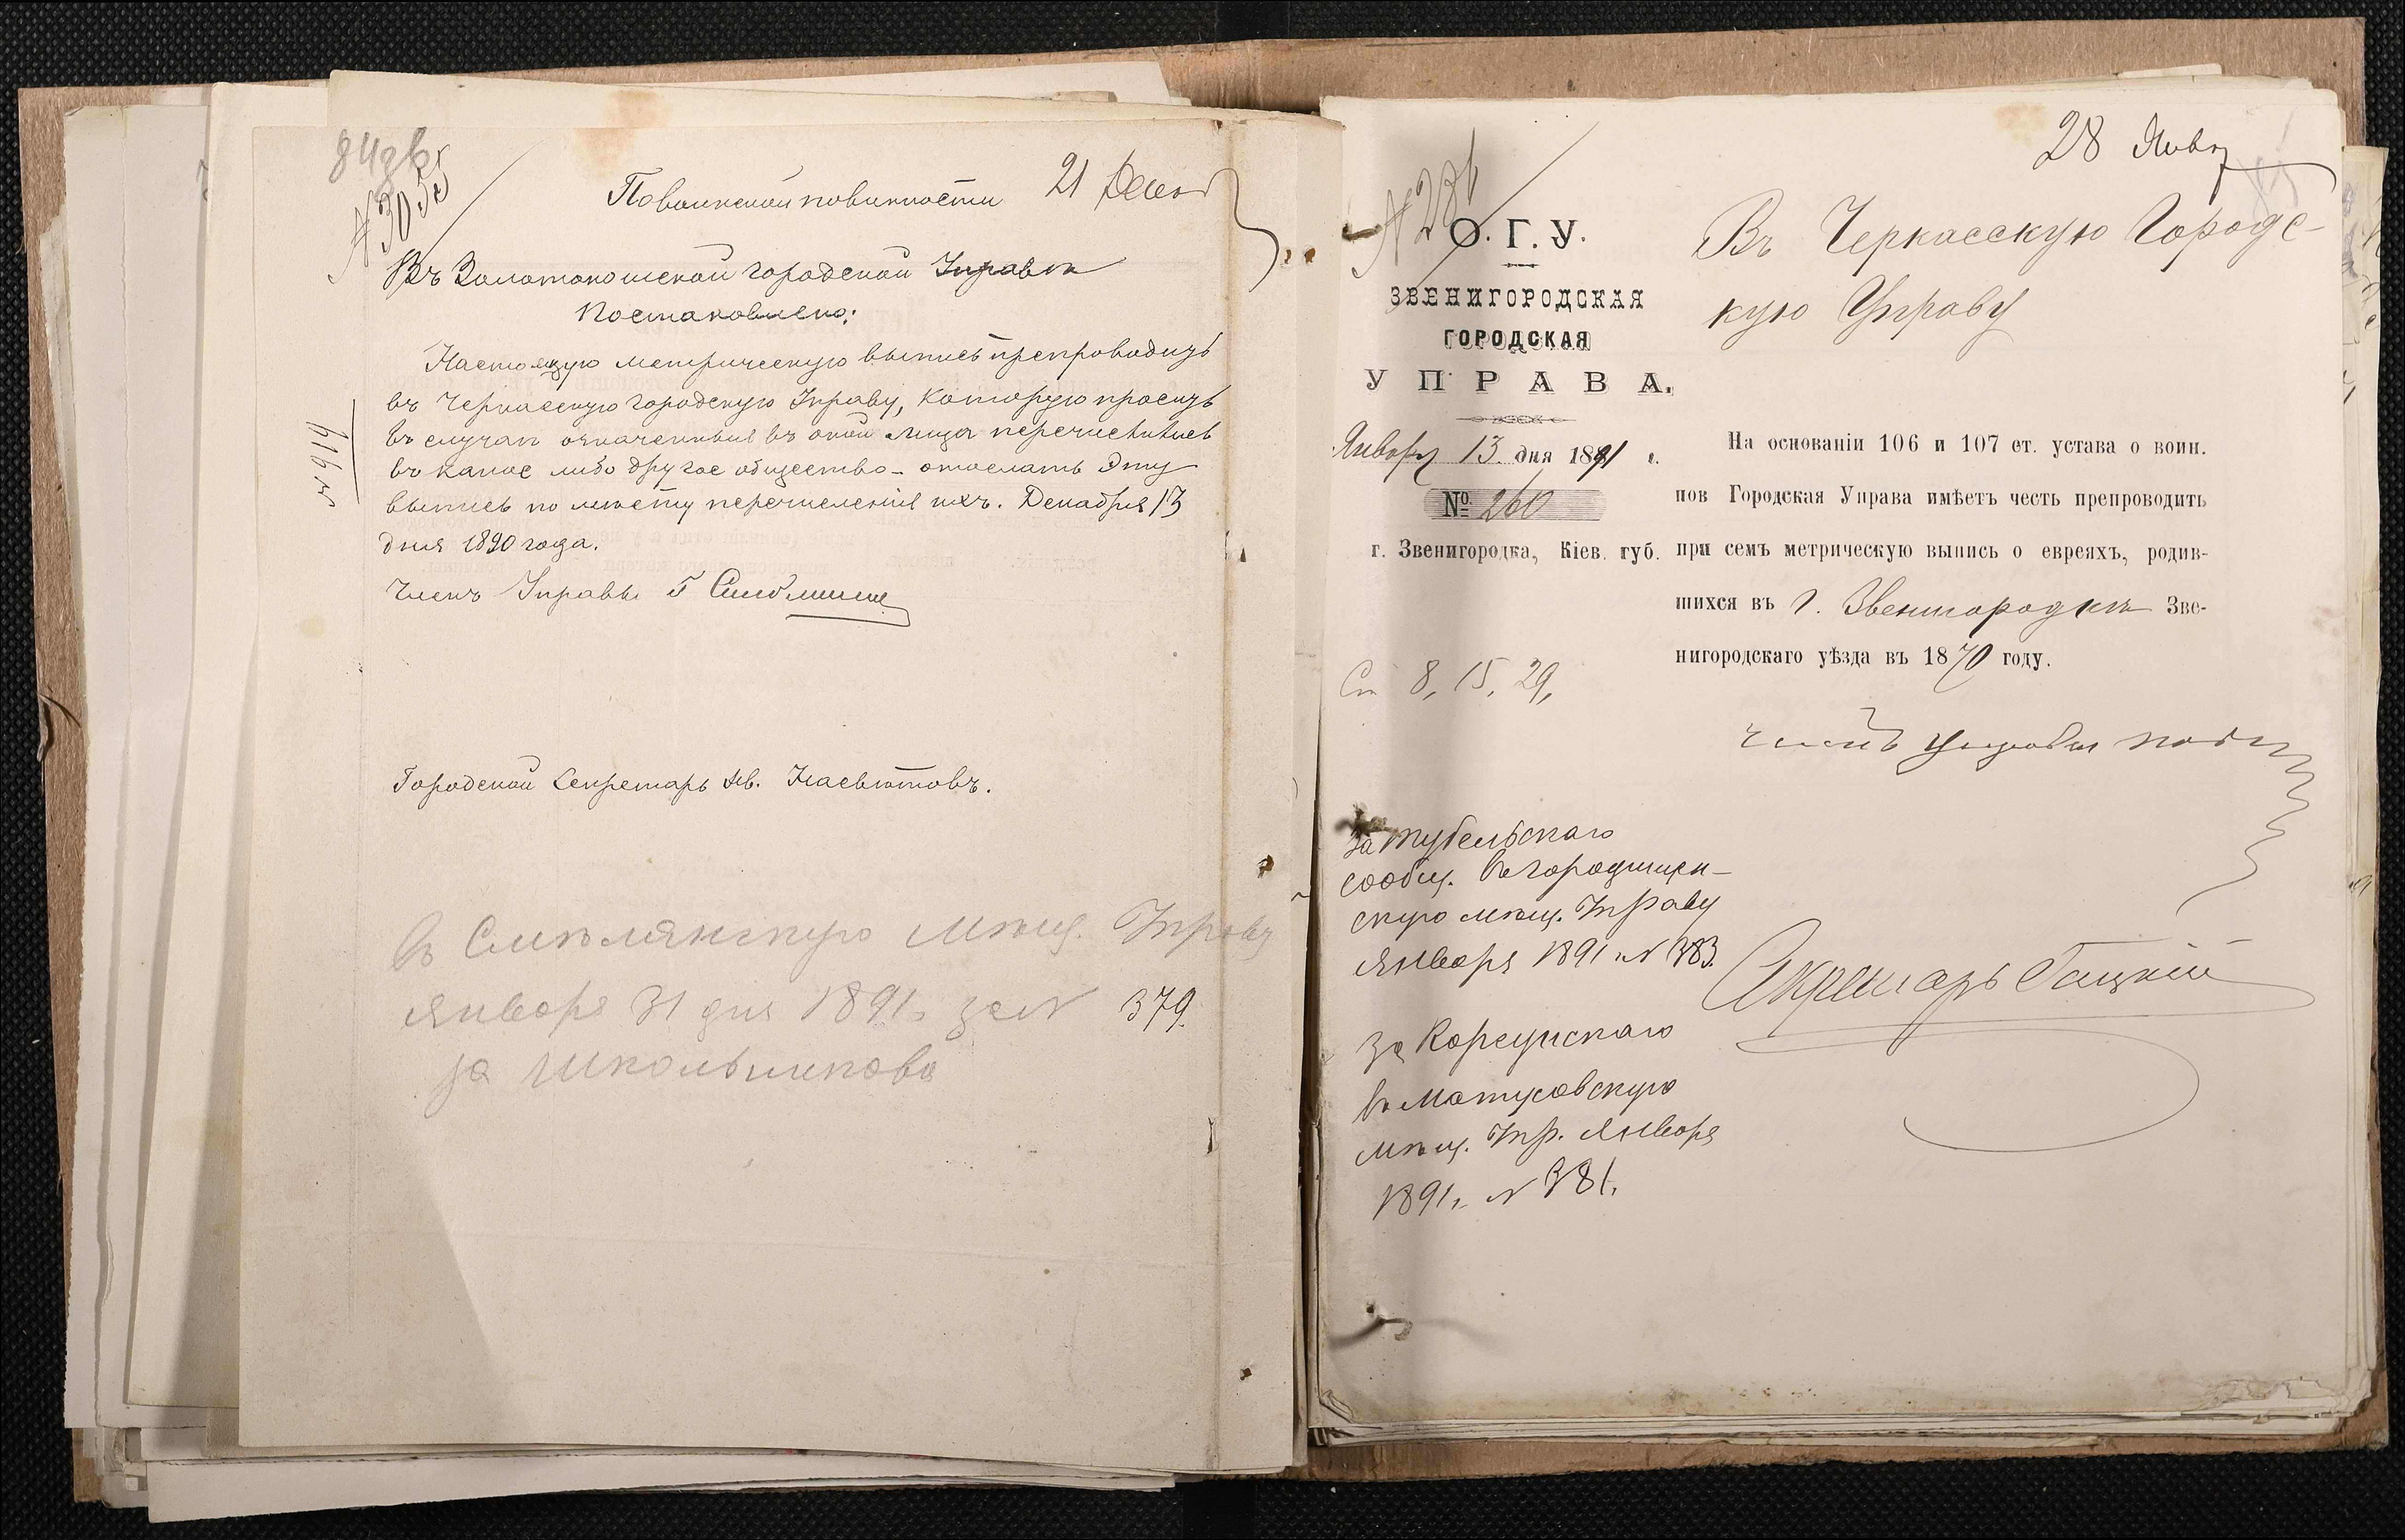 84 зв
N 3055
По воинской повинности 21 Декаб
Въ Золотоношской городской Управѣ
Постановлено:
Настоящую метрическую выпись препроводить
въ Черкасскую городскую Управу, которую просить
въ случаѣ означенныя въ оной лица перечислились
въ какое либо другое общество - отослать эту
выпись по мѣсту перечисленія ихъ. Декабря 13
дня 1890 года.
Членъ Управы
N 6119
Городской Секретарь Ив.
въ Смѣлянскую Мѣщ. Управу
Января 31 дня 1891 г. за N 379.
за Школьникова
28 Янв
N 286
О. Г. У.
ЗВЕНИГОРОДСКАЯ
ГОРОДСКАЯ
УПРАВА.
Января 13 дня 1891 г.
№ 260
г. Звенигородка, Кіев. губ.
Ст 8, 15, 29,
Въ Черкасскую Городс-
кую Управу
На основаніи 106 и 107 ст. устава о воин.
пов Городская Управа имѣетъ честь препроводить
при семъ метрическую выпись о евреяхъ, родив-
шихся въ г. Звенигородкѣ Зве-
нигородскаго уѣзда въ 1870 году.
Членъ Управы
Секретарь
за
сообщ. въ Городищен-
скую мѣщ. Управу
Января 1891 N 383.
за Корсунскаго
въ Матусовскую
мѣщ. Упр. Января
1891 г. N 381.